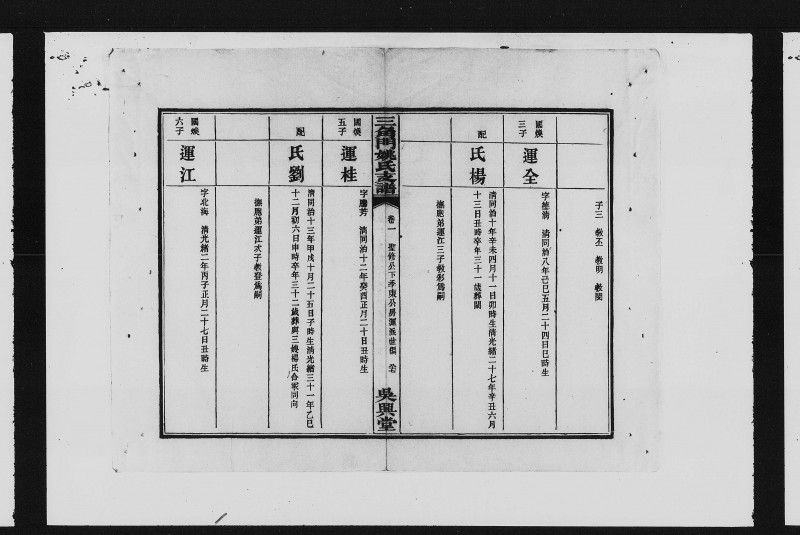 子三 教丕 教明 教閔
國煥
三子
運全
字楚清 清同治八年己巳五月二十四日巳時生
配
楊氏
清同治十年辛未四月十一日卯時生清光緒二十七年辛丑六月
十三日丑時卒年三十一歲葬闕
撫胞弟運江三子教彩爲嗣
三角門姚氏支譜
卷一
吳興堂
國煥
五子
運桂
字勝芳 清同治十二年癸酉正月二十日丑時生
配
劉氏
清同治十三年甲戌十月二十五日子時生清光緒三十一年乙巳
十二月初六日申時卒年三十二歲葬與三嫂楊氏合冢同向
撫胞弟運江次子教登爲嗣
國煥
六子
運江
字北海 清光緒二年丙子正月二十七日丑時生